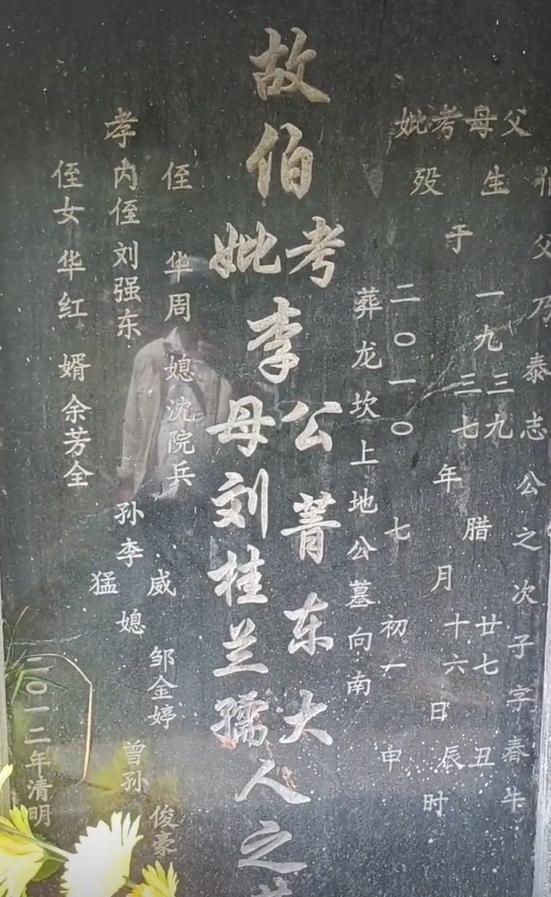 父乃泰志公之次子字春牛
父母考妣
生殁于
一九三九 腊 廿七 丑
三七 十六 辰
年月日时
二〇一〇 七 初一 申
葬龙坎上地公墓向南
故伯
考 公菁东大
李
妣 母刘桂兰孺
人之
侄 华周 媳 沈院兵
孝内侄 刘强东
侄女 华红 婿 余芳全
孙李 威 猛
媳 邹金婷
曾孙 俊豪
二〇一二年清明